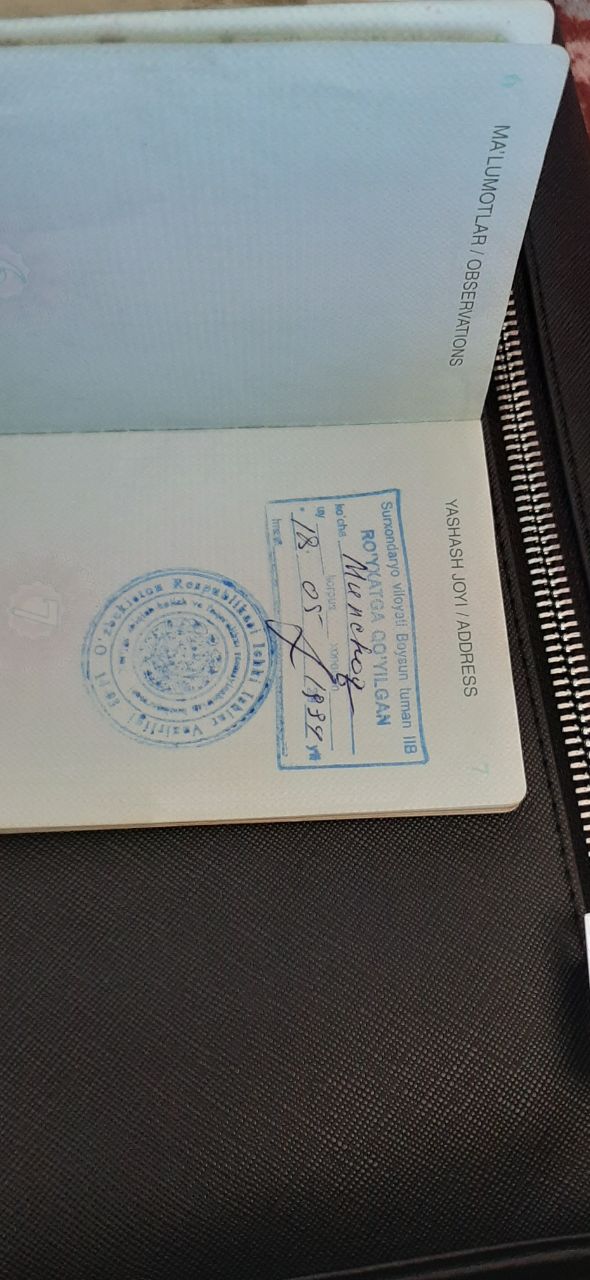 6
MA'LUMOTLAR / OBSERVATIONS
6
YASHASH JOYI / ADDRESS
7
Surxondaryo viloyati Boysun tuman IIB
RO'YXATGA QO'YILGAN
ko'cha Munchoq
uy korpus xonadon
" 18. 05 1994 yil
Imzo
O'zbekiston Respublikasi Ichki Ishlar Vazirligi
7